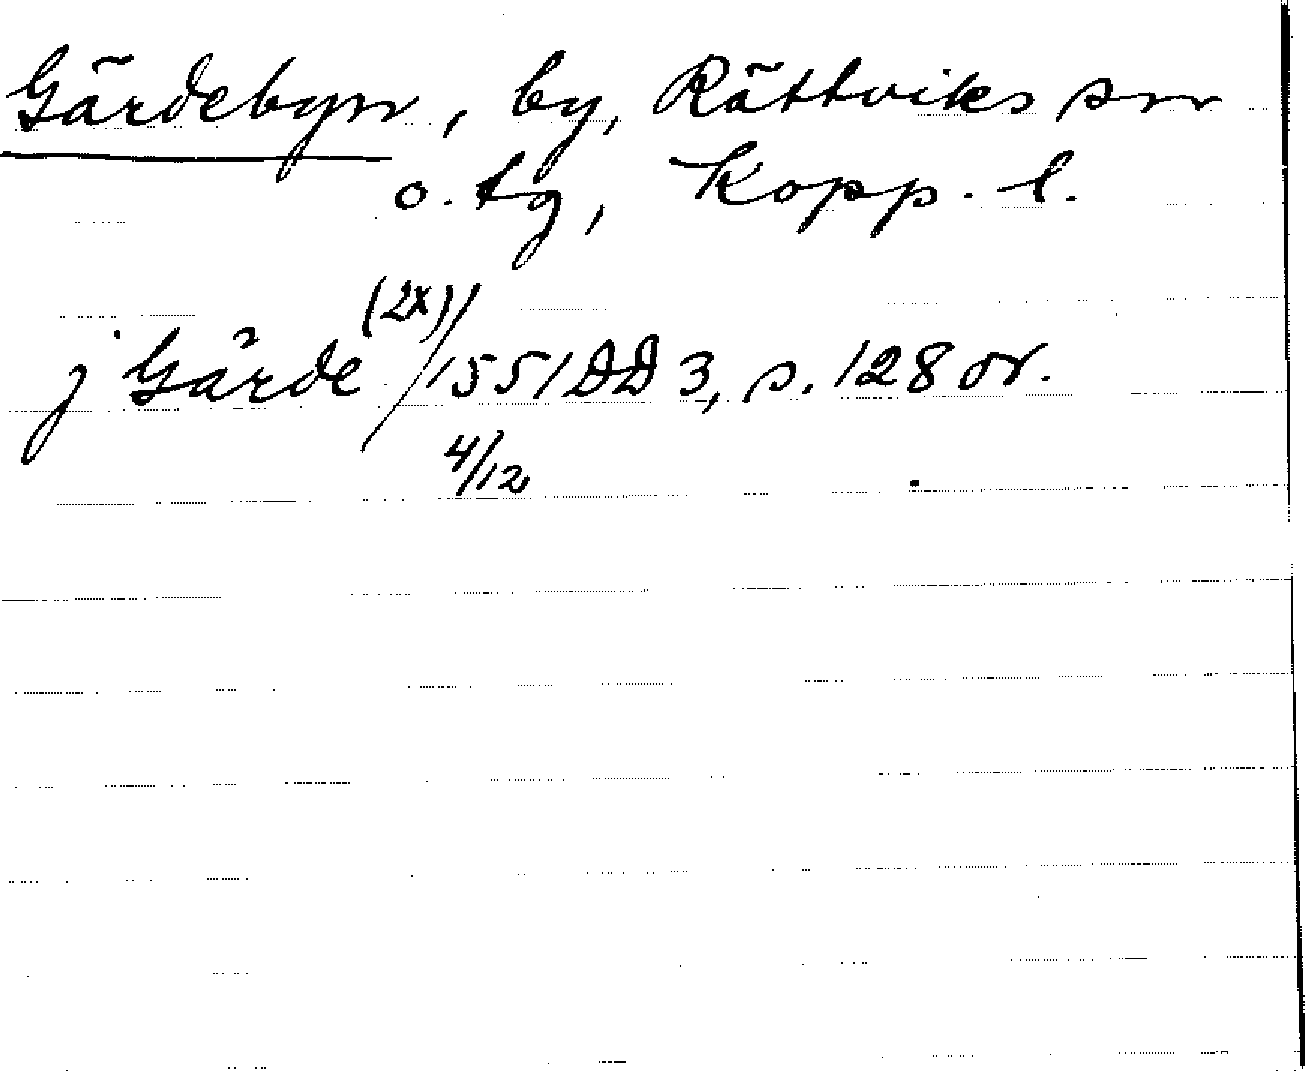 Gärdebyn, by, Rättviks sn
o. tg, Kopp. l.
(2x)
j Gärde / 1551 DD 3, s. 128 or.
4/12